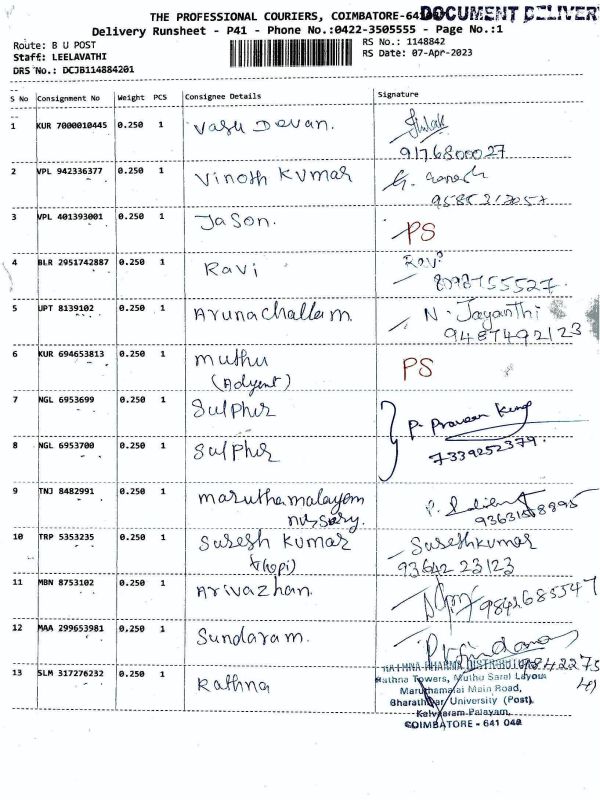 THE PROFESSIONAL COURIERS, COIMBATORE-641
DOCUMENT DELIVER
Delivery Runsheet - P41 - Phone No.:0422-3505555 - Page No.:1
Route: B U POST
RS No.: 1148842
Staff: LEELAVATHI
RS Date: 07-Apr-2023
DRS No.: DCJB114884201
S No Consignment No Weight PCS Consignee Details Signature
1 KUR 7000010445 0.250 1 Vasu Devan.
9176800027
2 VPL 942336377 0.250 1 Vinoth Kumar G. Ganesh
3 VPL 401393001 0.250 1 Jason. PS
4 BLR 2951742887 0.250 1 Ravi Ravi
5 UPT 8139102 0.250 1 Arunachallam. N. Jayanthi
9487492123
6 KUR 694653813 0.250 1 Muthu PS
(Adyent)
7 NGL 6953699 0.250 1 Sulphur P. Praveen Kumar
7339252379.
8 NGL 6953700 0.250 1 Sulphur
9 TNJ 8482991 0.250 1 maruthamalayam
nursery.
10 TRP 5353235 0.250 1 Suresh Kumar Sureshkumar
(Kopi) 93642 23123
11 MBN 8753102 0.250 1 Arivazhan. 9842685547
12 MAA 299653981 0.250 1 Sundaram.
13 SLM 317276232 0.250 1 Rathna
RATHNA PHARMA DISTRIBUTORS
Rathna Towers, Muthu Saral Layout
Maruthamalai Main Road,
Bharathiar University (Post),
Kalveeram Palayam,
COIMBATORE - 641 046